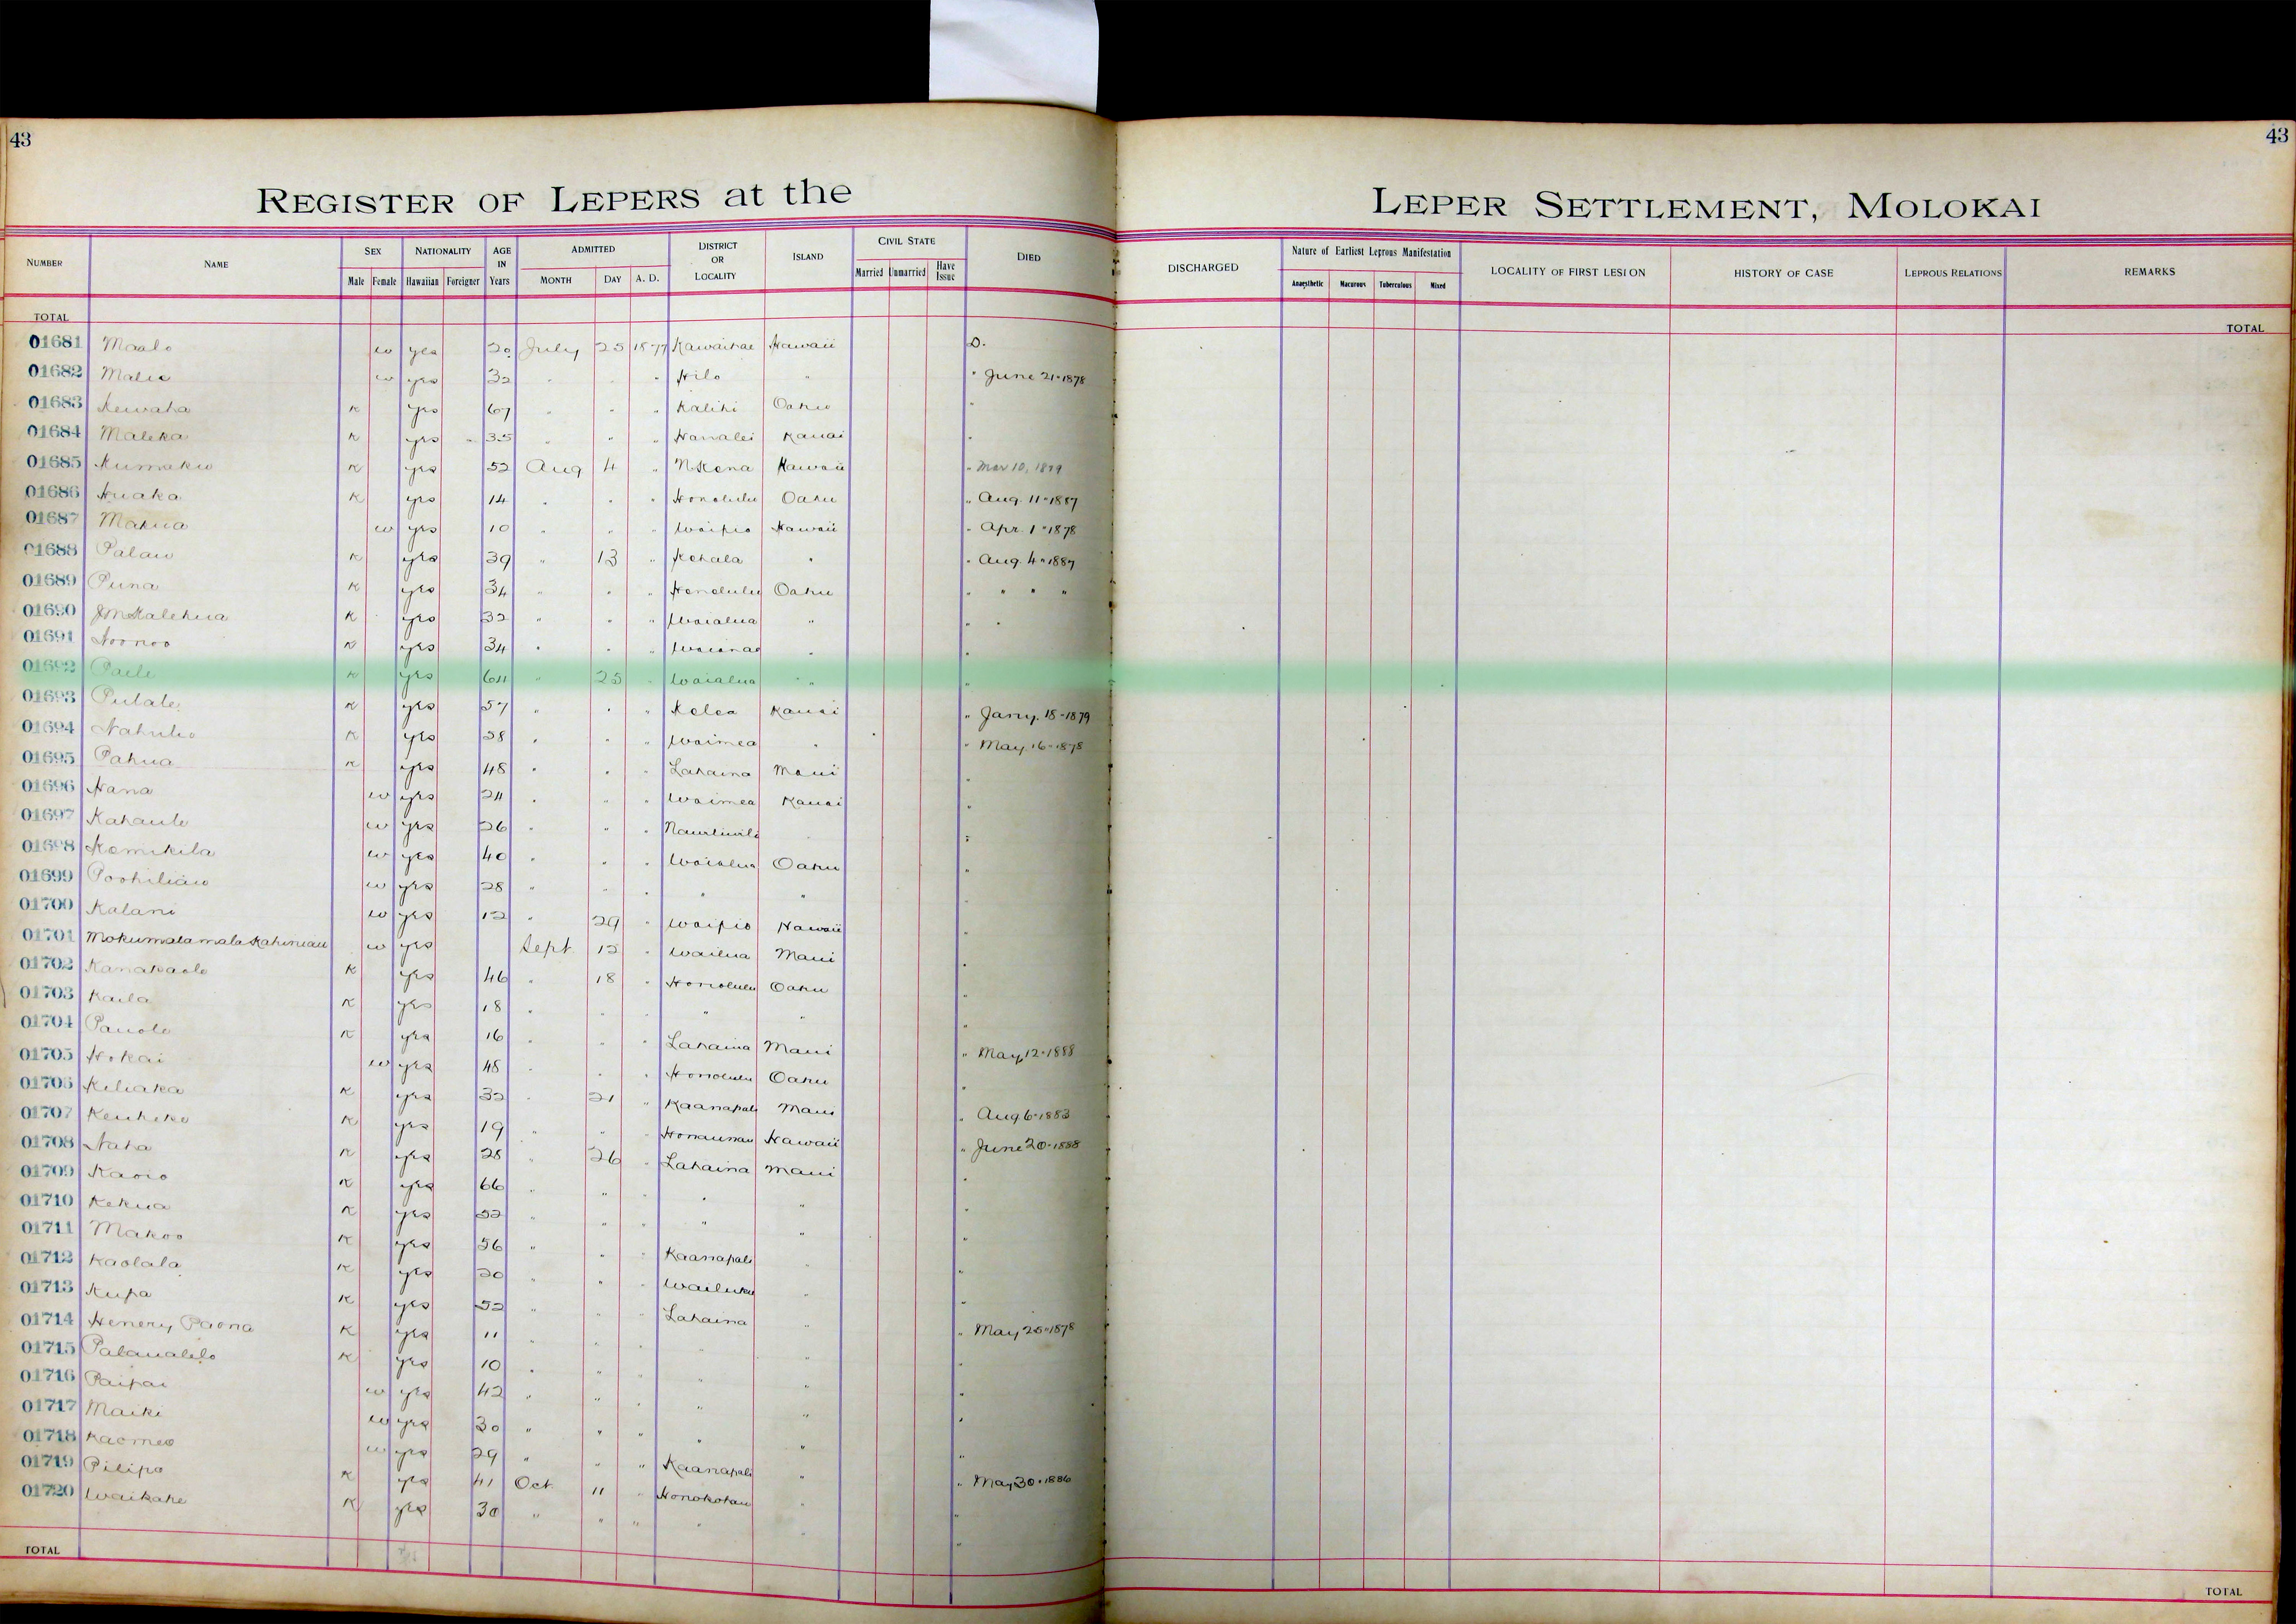 43
43
REGISTER OF LEPERS at the
LEPER SETTLEMENT, MOLOKAI
NUMBER NAME SEX NATIONALITY AGE IN Years ADMITTED DISTRICT OR LOCALITY ISLAND CIVIL STATE DIED DISCHARGED Nature of Earliest Leprous Manifestation LOCALITY OF FIRST LESION HISTORY OF CASE LEPROUS RELATIONS REMARKS
Male Female Hawaiian Foreigner MONTH DAY A. D. Married Unmarried Have Issue Anaesthetic Macurous Tuberculous Mixed
TOTAL TOTAL
01681 Maalo w yes 20 July 25 1877 Kawaihae Hawaii D.
01682 w yes 32 " " " Hilo " " June 21-1878
01683 Kewaha K yes 67 " " " Kalihi Oahu "
01684 Maleka K yes 35 " " " Hanalei Kauai "
01685 Kumaku K yes 52 Aug 4 " N Kona Hawaii " Mar 10, 1879
01686 Huaka K yes 14 " " " Honolulu Oahu " Aug. 11-1887
01687 Makua w yes 10 " " " Waipio Hawaii " Apr. 1-1878
01688 Palau K yes 39 " 13 " Kohala " " Aug. 4-1887
01689 Puna K yes 34 " " " Honolulu Oahu " " " "
01690 K yes 32 " " " Waialua " " "
01691 Noonoo K yes 34 " " " Waianae " "
01692 Paele K yes 64 " 25 " Waialua " "
01693 Pulale K yes 57 " " " Kolea Kauai " Jany. 18-1879
01694 K yes 28 " " " Waimea " " May. 16-1878
01695 Pahua K yes 48 " " " Lahaina Maui "
01696 Hana w yes 24 " " " Waimea Kauai "
01697 Kahaule w yes 26 " " " "
01698 Kamikila w yes 40 " " " Waialua Oahu "
01699 Poohiliau w yes 28 " " " " "
01700 Kalani w yes 12 " 29 " Waipio Hawaii "
01701 Mokumalamala Kahiniau w yes Sept 12 " Wailua Maui "
01702 Kanakaole K yes 46 " 18 " Honolulu Oahu "
01703 Kaila K yes 18 " " " " " "
01704 Pauole K yes 16 " " " Lahaina Maui " May 12-1888
01705 Hokai w yes 48 " " " Honolulu Oahu "
01706 Keliaka K yes 32 " 21 " Kaanapali Maui " Aug 6-1883
01707 K yes 19 " " " Honaunau Hawaii " June 20-1888
01708 Naha K yes 28 " 26 " Lahaina Maui "
01709 K yes 66 " " " " " "
01710 Kekua K yes 52 " " " " " "
01711 Makoo K yes 56 " " " Kaanapali " "
01712 Kaolala K yes 20 " " " Wailuku " "
01713 Kupa K yes 52 " " " Lahaina " "
01714 Henery Paona K yes 11 " " " " " " May 25-1878
01715 Palaualelo K yes 10 " " " " " "
01716 Paipai w yes 42 " " " " " "
01717 Maiki w yes 30 " " " " " "
01718 Kaomea w yes 29 " " " Kaanapali " "
01719 Pilipo K yes 41 Oct 11 " Honokohau " " May 30-1886
01720 Waikahe K yes 30 " " " " " "
TOTAL TOTAL